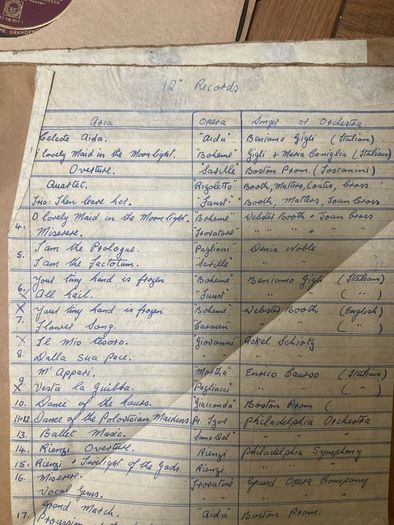 THE GRAMOPHONE
12" Records
Aria Opera Singer or Orchestra.
Celeste Aida. "Aida" Beniamo Gigli (Italian)
lovely Maid in the Moonlight. "Boheme" Gigli & Maria Caniglia (Italian)
Overture. "Saville" Boston Prom. (Toscanini)
Quartet. "Rigoletto" Booth, Matters, Coates, Cross
Trio: Then leave her. "Faust" Booth, Matters, Joan Cross
4. O lovely Maid in the Moonlight. "Boheme" Webster Booth & Joan Cross
Miserere. "Trovatore" " " & " "
5. I am the Prologue. "Pagliacci" Denis Noble
I am the factotum. "Saville" " "
6. Your tiny hand is frozen "Boheme" Beniamo Gigli (Italian)
X All hail. "Faust" " " ( " )
X Your tiny hand is frozen "Boheme" Webster Booth (English)
7. Flower Song. "Carmen" " " ( " )
X Il mio tesoro "Giovanni" Aksel Schiotz
8. Dalla sua pace. " " "
M'Appari. "Martha" Enrico Caruso (Italian)
9. Vesta la guibba. "Pagliacci" " " ( " )
10. Dance of the hours. "Giaconda" Boston Prom (
11-12. Dance of the Polovtsian Maidens Pr. Igor Philadelphia Orchestra
13. Ballet Music. " "
14. Rienzi Overture. Rienzi Philadelphia Symphony
15. Rienzi & Twilight of the Gods. Rienzi " "
16. Miserere. "Trovatore" Grand Opera Company
Vocal Gems. " "
17. Grand March. "Aida" Boston Prom.